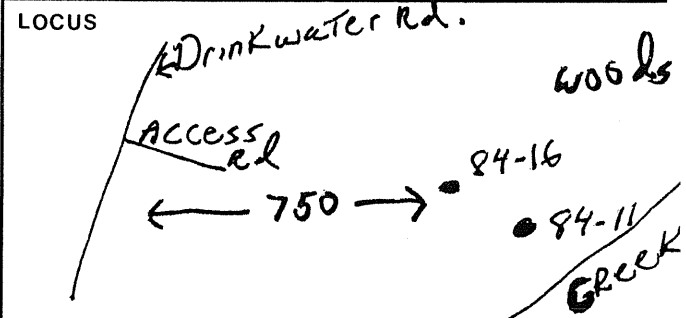 LOCUS
Drinkwater Rd.
woods
Access
Rd
84-16
750
84-11
GReeK